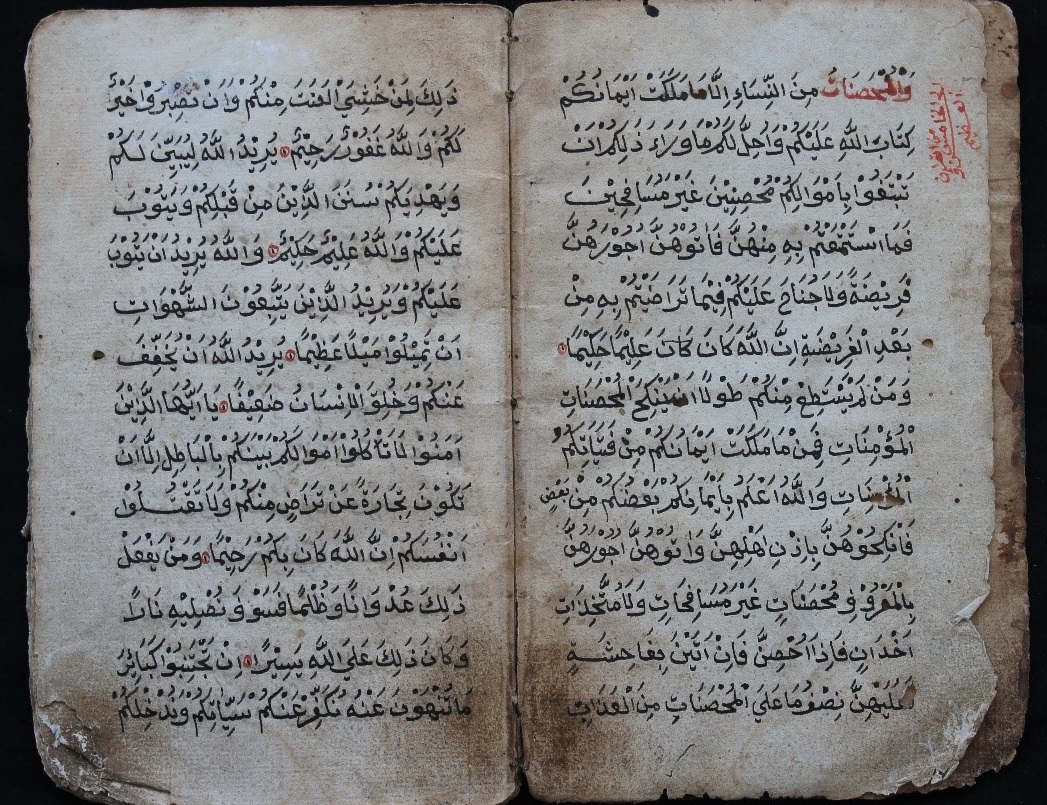 وَالْمُحْصَنَاتُ مِنَ النِّسَاءِ اِلَّا مَا مَلَكَتْ اَيْمَانُكُمْ
كِتَابَ اللّٰهِ عَلَيْكُمْ وَاُحِلَّ لَكُمْ مَا وَرَاءَ ذَلِكُمْ اَنْ
تَبْتَغُوا بِاَمْوَالِكُمْ مُحْصِنِيْنَ غَيْرَ مُسَافِحِيْنَ
فَمَا اسْتَمْتَعْتُمْ بِهِ مِنْهُنَّ فَاٰتُوْهُنَّ اُجُوْرَهُنَّ
فَرِيْضَةً وَلَا جُنَاحَ عَلَيْكُمْ فِيْمَا تَرَاضَيْتُمْ بِهِ مِنْ
بَعْدِ الْفَرِيْضَةِ اِنَّ اللّٰهَ كَانَ كَانَ عَلِيْمًا حَكِيْمًا
وَمَنْ لَمْ يَسْتَطِعْ مِنْكُمْ طَوْلًا اَنْ يَنْكِحَ الْمُحْصَنَاتِ
الْمُؤْمِنَاتِ فَمِنْ مَا مَلَكَتْ اَيْمَانُكُمْ مِنْ فَتَيَاتِكُمُ
الْمُؤْمِنَاتِ وَاللّٰهُ اَعْلَمُ بِاِيْمَانِكُمْ بَعْضُكُمْ مِنْ بَعْضٍ
فَانْكِحُوْهُنَّ بِاِذْنِ اَهْلِهِنَّ وَاٰتُوْهُنَّ اُجُوْرَهُنَّ
بِالْمَعْرُوْفِ مُحْصَنَاتٍ غَيْرَ مُسَافِحَاتٍ وَلَا مُتَّخِذَاتِ
اَخْدَانٍ فَاِذَا اُحْصِنَّ فَاِنْ اَتَيْنَ بِفَاحِشَةٍ
فَعَلَيْهِنَّ نِصْفُ مَا عَلَي الْمُحْصَنَاتِ مِنَ الْعَذَابِ
ذَلِكَ لِمَنْ خَشِيَ الْعَنَتَ مِنْكُمْ وَاَنْ تَصْبِرُوْا خَيْرٌ
لَكُمْ وَاللّٰهُ غَفُوْرٌ رَحِيْمٌ يُرِيْدُ اللّٰهُ لِيُبَيِّنَ لَكُمْ
وَيَهْدِيَكُمْ سُنَنَ الَّذِيْنَ مِنْ قَبْلِكُمْ وَيَتُوْبَ
عَلَيْكُمْ وَاللّٰهُ عَلِيْمٌ حَكِيْمٌ وَاللّٰهُ يُرِيْدُ اَنْ يَتُوْبَ
عَلَيْكُمْ وَيُرِيْدُ الَّذِيْنَ يَتَّبِعُوْنَ الشَّهْوَاتِ
اَنْ تَمِيْلُوْا مَيْلًا عَظِيْمًا يُرِيْدُ اللّٰهُ اَنْ يُخَفِّفَ
عَنْكُمْ وَخُلِقَ الْاِنْسَانُ ضَعِيْفًا يَا اَيُّهَا الَّذِيْنَ
اٰمَنُوْا لَا تَاْكُلُوْا اَمْوَالَكُمْ بَيْنَكُمْ بِالْبَاطِلِ اِلَّا اَنْ
تَكُوْنَ تِجَارَةً عَنْ تَرَاضٍ مِنْكُمْ وَلَا تَقْتُلُوْا
اَنْفُسَكُمْ اِنَّ اللّٰهَ كَانَ بِكُمْ رَحِيْمًا وَمَنْ يَفْعَلْ
ذَلِكَ عُدْوَانًا وَظُلْمًا فَسَوْفَ نُصْلِيْهِ نَارًا
وَكَانَ ذَلِكَ عَلَي اللّٰهِ يَسِيْرًا اِنْ تَجْتَنِبُوْا كَبَائِرَ
مَا تُنْهَوْنَ عَنْهُ نُكَفِّرْ عَنْكُمْ سَيِّاٰتِكُمْ وَنُدْخِلْكُمْ